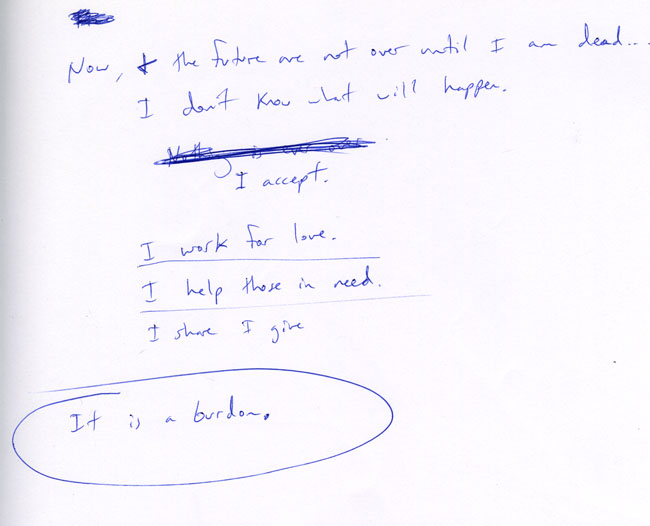 Now, & the future are not over until I am dead...
I don't know what will happen.
I accept.
I work for love.
I help those in need.
I share I give
It is a burdon.